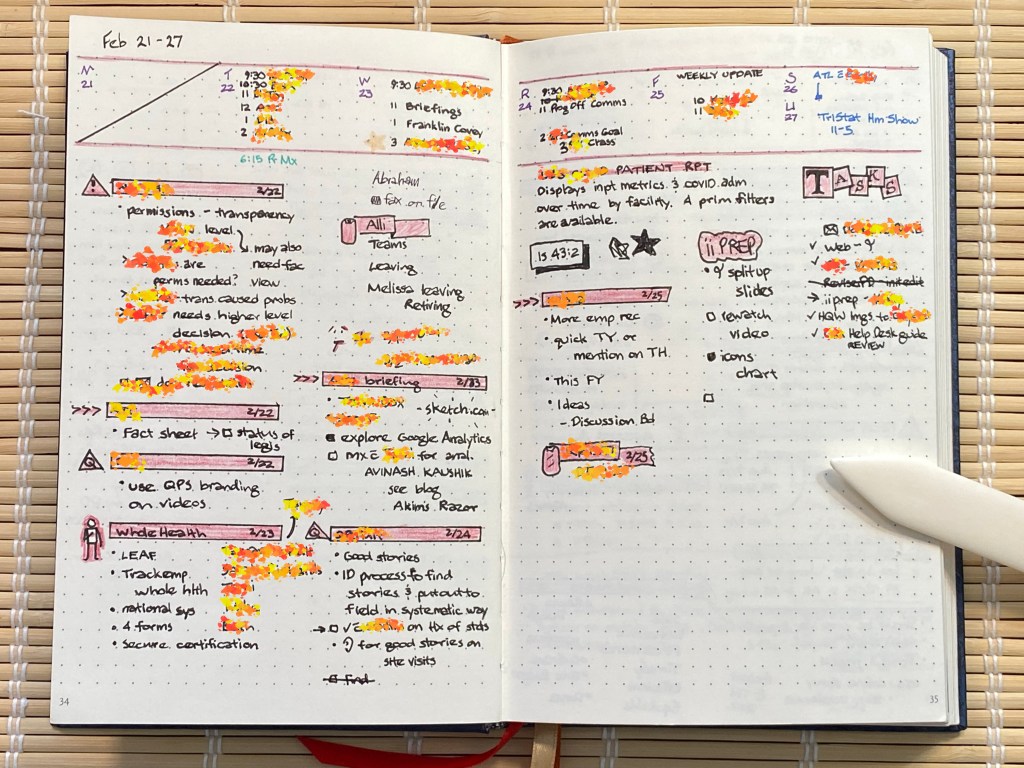 Feb 21-27
M
21
T
22
9:30
10:30
11
12
1
2
6:15 Pr Mx
W
23
9:30
11 Briefings
1 Franklin Covey
3
R
24
9:30
11 Aog Off Comms
2 Comms Goal
3 Class
F
25
WEEKLY UPDATE
10
11
S
26
ATL E
U
27
TriStat Hm Show
11-5
2/22
permissions - transparency
level
may also
are need fac
perms needed? view
trans. caused probs
needs higher level
decision
>>> 2/22
• Fact sheet → status of
legis
Q 2/22
• use QPS branding
on videos
Whole Health 2/23
• LEAF
• Track emp
whole hlth
• national sys
• 4 forms
• secure certification
34
Abraham
fax on file
Alli
Teams
Leaving
Melissa leaving
Retiring
>>> briefing 2/23
- sketch.com -
explore Google Analytics
for anal.
AVINASH KAUSHIK
see blog
Akim's Razor
Q 2/24
• Good stories
• ID process to find
stories & put out to
field in systematic way
→ ✓ on Hx of stds
• for good stories on
site visits
find
PATIENT RPT
Displays inpt metrics & covid adm
over time by facility. A prlm filters
are available.
IS 43:2
>>> 2/25
• More emp rec
• quick TY or
mention on TH.
• This FY
• Ideas
- Discussion Bd
2/25
ii PREP
• split up
slides
rewatch
video
icons
chart
TASKS
✓ Web -
✓
→ ii prep -
✓ HQW Imgs to
✓ Help Desk guide
REVIEW
35